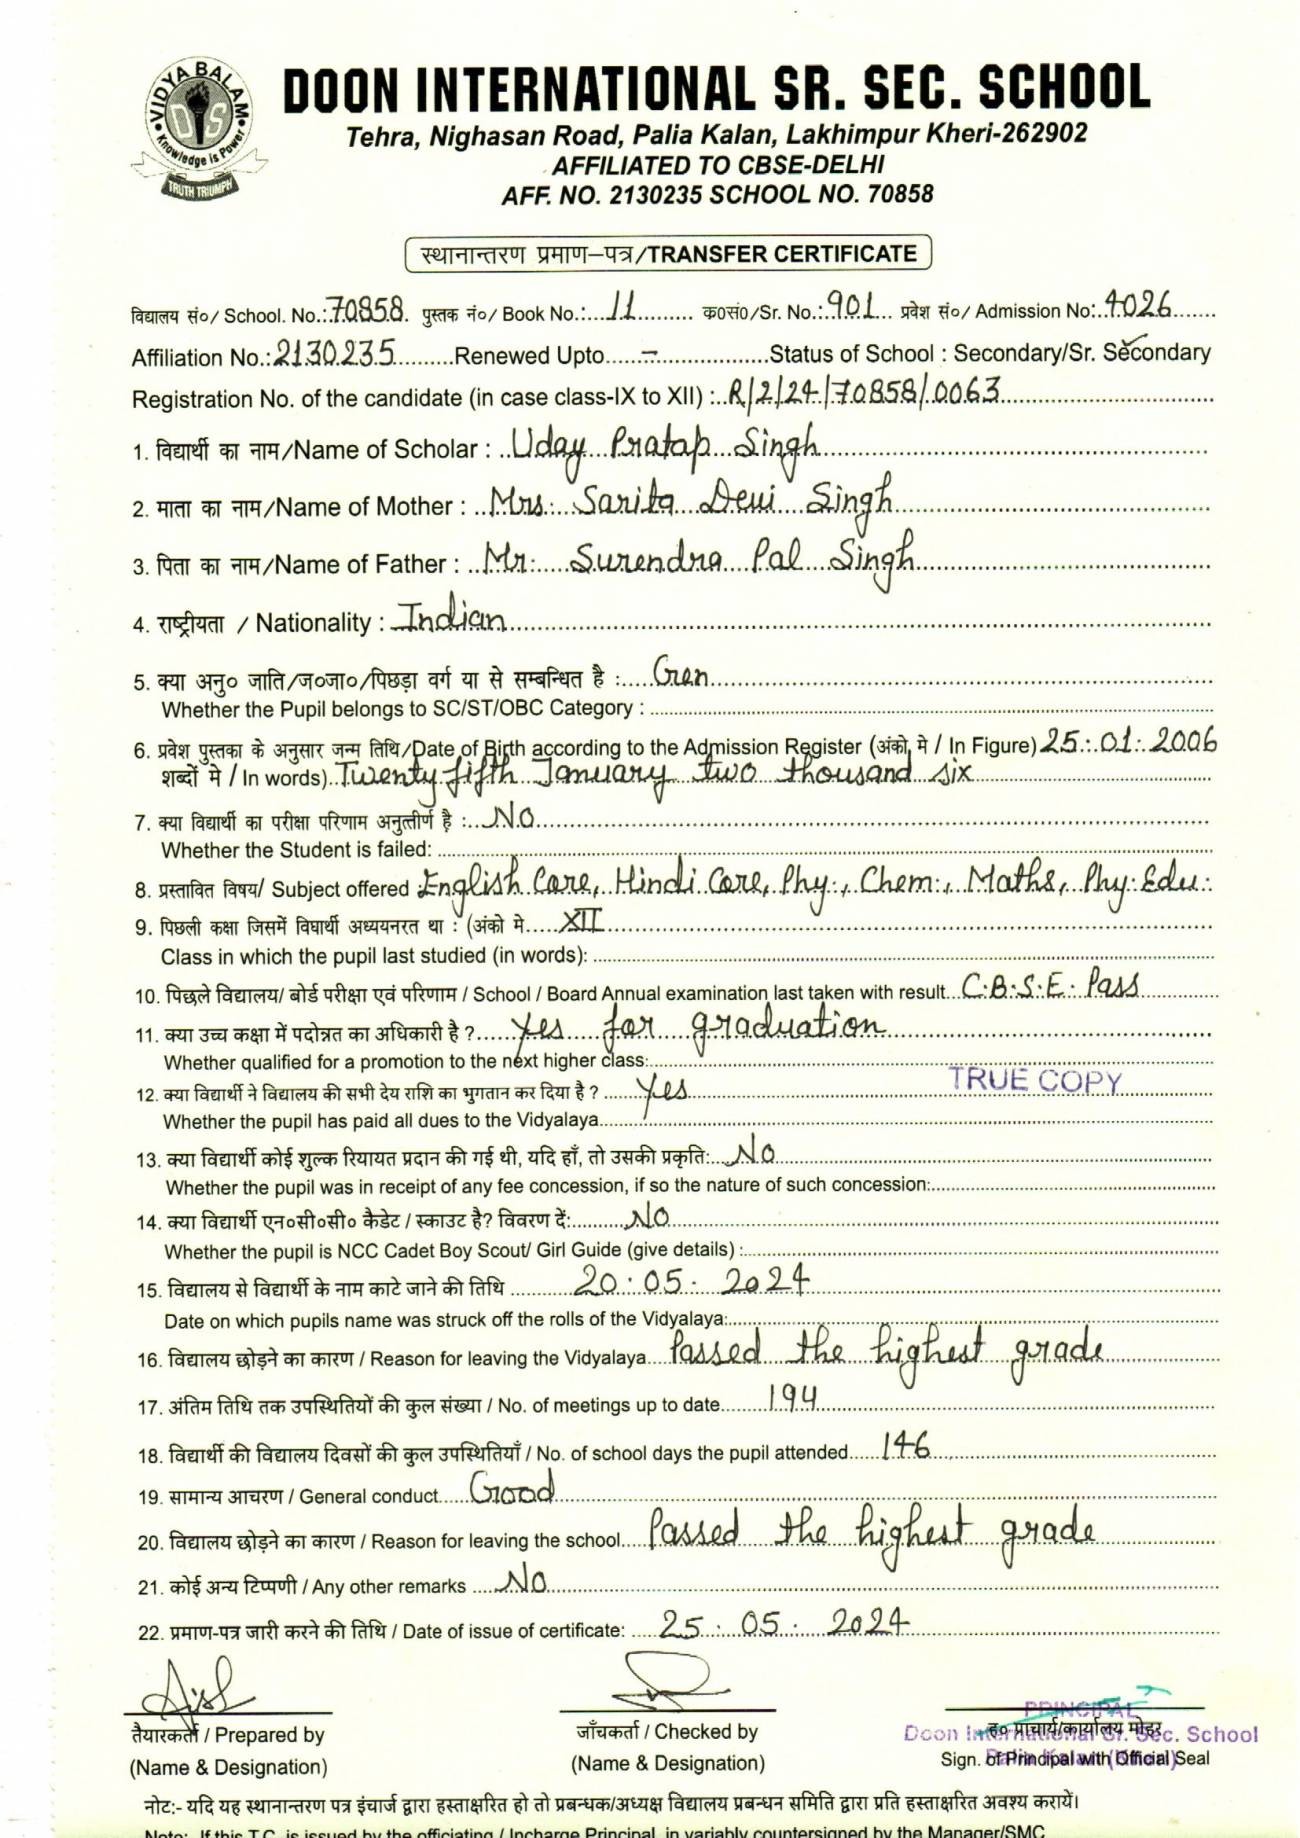 VIDYA BALAM
DIS
Knowledge is Power
TRUTH TRIUMPH
DOON INTERNATIONAL SR. SEC. SCHOOL
Tehra, Nighasan Road, Palia Kalan, Lakhimpur Kheri-262902
AFFILIATED TO CBSE-DELHI
AFF. NO. 2130235 SCHOOL NO. 70858
स्थानान्तरण प्रमाण–पत्र/TRANSFER CERTIFICATE
विद्यालय सं०/ School. No.: 70858 पुस्तक नं०/ Book No.: 11 क०सं०/Sr. No.: 901 प्रवेश सं०/ Admission No: 4026
Affiliation No.: 2130235 Renewed Upto – Status of School : Secondary/Sr. Secondary
Registration No. of the candidate (in case class-IX to XII) : R/2/24/70858/0063
1. विद्यार्थी का नाम/Name of Scholar : Uday Pratap Singh
2. माता का नाम/Name of Mother : Mrs. Sarita Devi Singh
3. पिता का नाम/Name of Father : Mr. Surendra Pal Singh
4. राष्ट्रीयता / Nationality : Indian
5. क्या अनु० जाति/ज०जा०/पिछड़ा वर्ग या से सम्बन्धित है : Gen
Whether the Pupil belongs to SC/ST/OBC Category :
6. प्रवेश पुस्तका के अनुसार जन्म तिथि/Date of Birth according to the Admission Register (अंको में / In Figure) 25.01.2006
शब्दों मे / In words) Twenty fifth January two thousand six
7. क्या विद्यार्थी का परीक्षा परिणाम अनुत्तीर्ण है : No
Whether the Student is failed:
8. प्रस्तावित विषय/ Subject offered English Core, Hindi Core, Phy., Chem., Maths, Phy. Edu.
9. पिछली कक्षा जिसमें विघार्थी अध्ययनरत था : (अंको मे XII
Class in which the pupil last studied (in words):
10. पिछले विद्यालय/ बोर्ड परीक्षा एवं परिणाम / School / Board Annual examination last taken with result C.B.S.E. Pass
11. क्या उच्च कक्षा में पदोन्नत का अधिकारी है ? Yes for graduation
Whether qualified for a promotion to the next higher class:
12. क्या विद्यार्थी ने विद्यालय की सभी देय राशि का भुगतान कर दिया है ? Yes
TRUE COPY
Whether the pupil has paid all dues to the Vidyalaya
13. क्या विद्यार्थी कोई शुल्क रियायत प्रदान की गई थी, यदि हाँ, तो उसकी प्रकृति: No
Whether the pupil was in receipt of any fee concession, if so the nature of such concession:
14. क्या विद्यार्थी एन०सी०सी० कैडेट / स्काउट है? विवरण दें: No
Whether the pupil is NCC Cadet Boy Scout/ Girl Guide (give details) :
15. विद्यालय से विद्यार्थी के नाम काटे जाने की तिथि 20.05.2024
Date on which pupils name was struck off the rolls of the Vidyalaya:
16. विद्यालय छोड़ने का कारण / Reason for leaving the Vidyalaya Passed the highest grade
17. अंतिम तिथि तक उपस्थितियों की कुल संख्या / No. of meetings up to date 194
18. विद्यार्थी की विद्यालय दिवसों की कुल उपस्थितियाँ / No. of school days the pupil attended 146
19. सामान्य आचरण / General conduct Good
20. विद्यालय छोड़ने का कारण / Reason for leaving the school Passed the highest grade
21. कोई अन्य टिप्पणी / Any other remarks No
22. प्रमाण-पत्र जारी करने की तिथि / Date of issue of certificate: 25.05.2024
PRINCIPAL
तैयारकर्ता / Prepared by जाँचकर्ता / Checked by ह० प्राचार्य/कार्यालय मोहर
Doon International Sr. Sec. School
(Name & Designation) (Name & Designation) Sign. of Principal with Official Seal
Palia Kalan (Kheri)
नोट:- यदि यह स्थानान्तरण पत्र इंचार्ज द्वारा हस्ताक्षरित हो तो प्रबन्धक/अध्यक्ष विद्यालय प्रबन्धन समिति द्वारा प्रति हस्ताक्षरित अवश्य करायें।
Note:- If this T.C. is issued by the officiating / Incharge Principal, in variably countersigned by the Manager/SMC